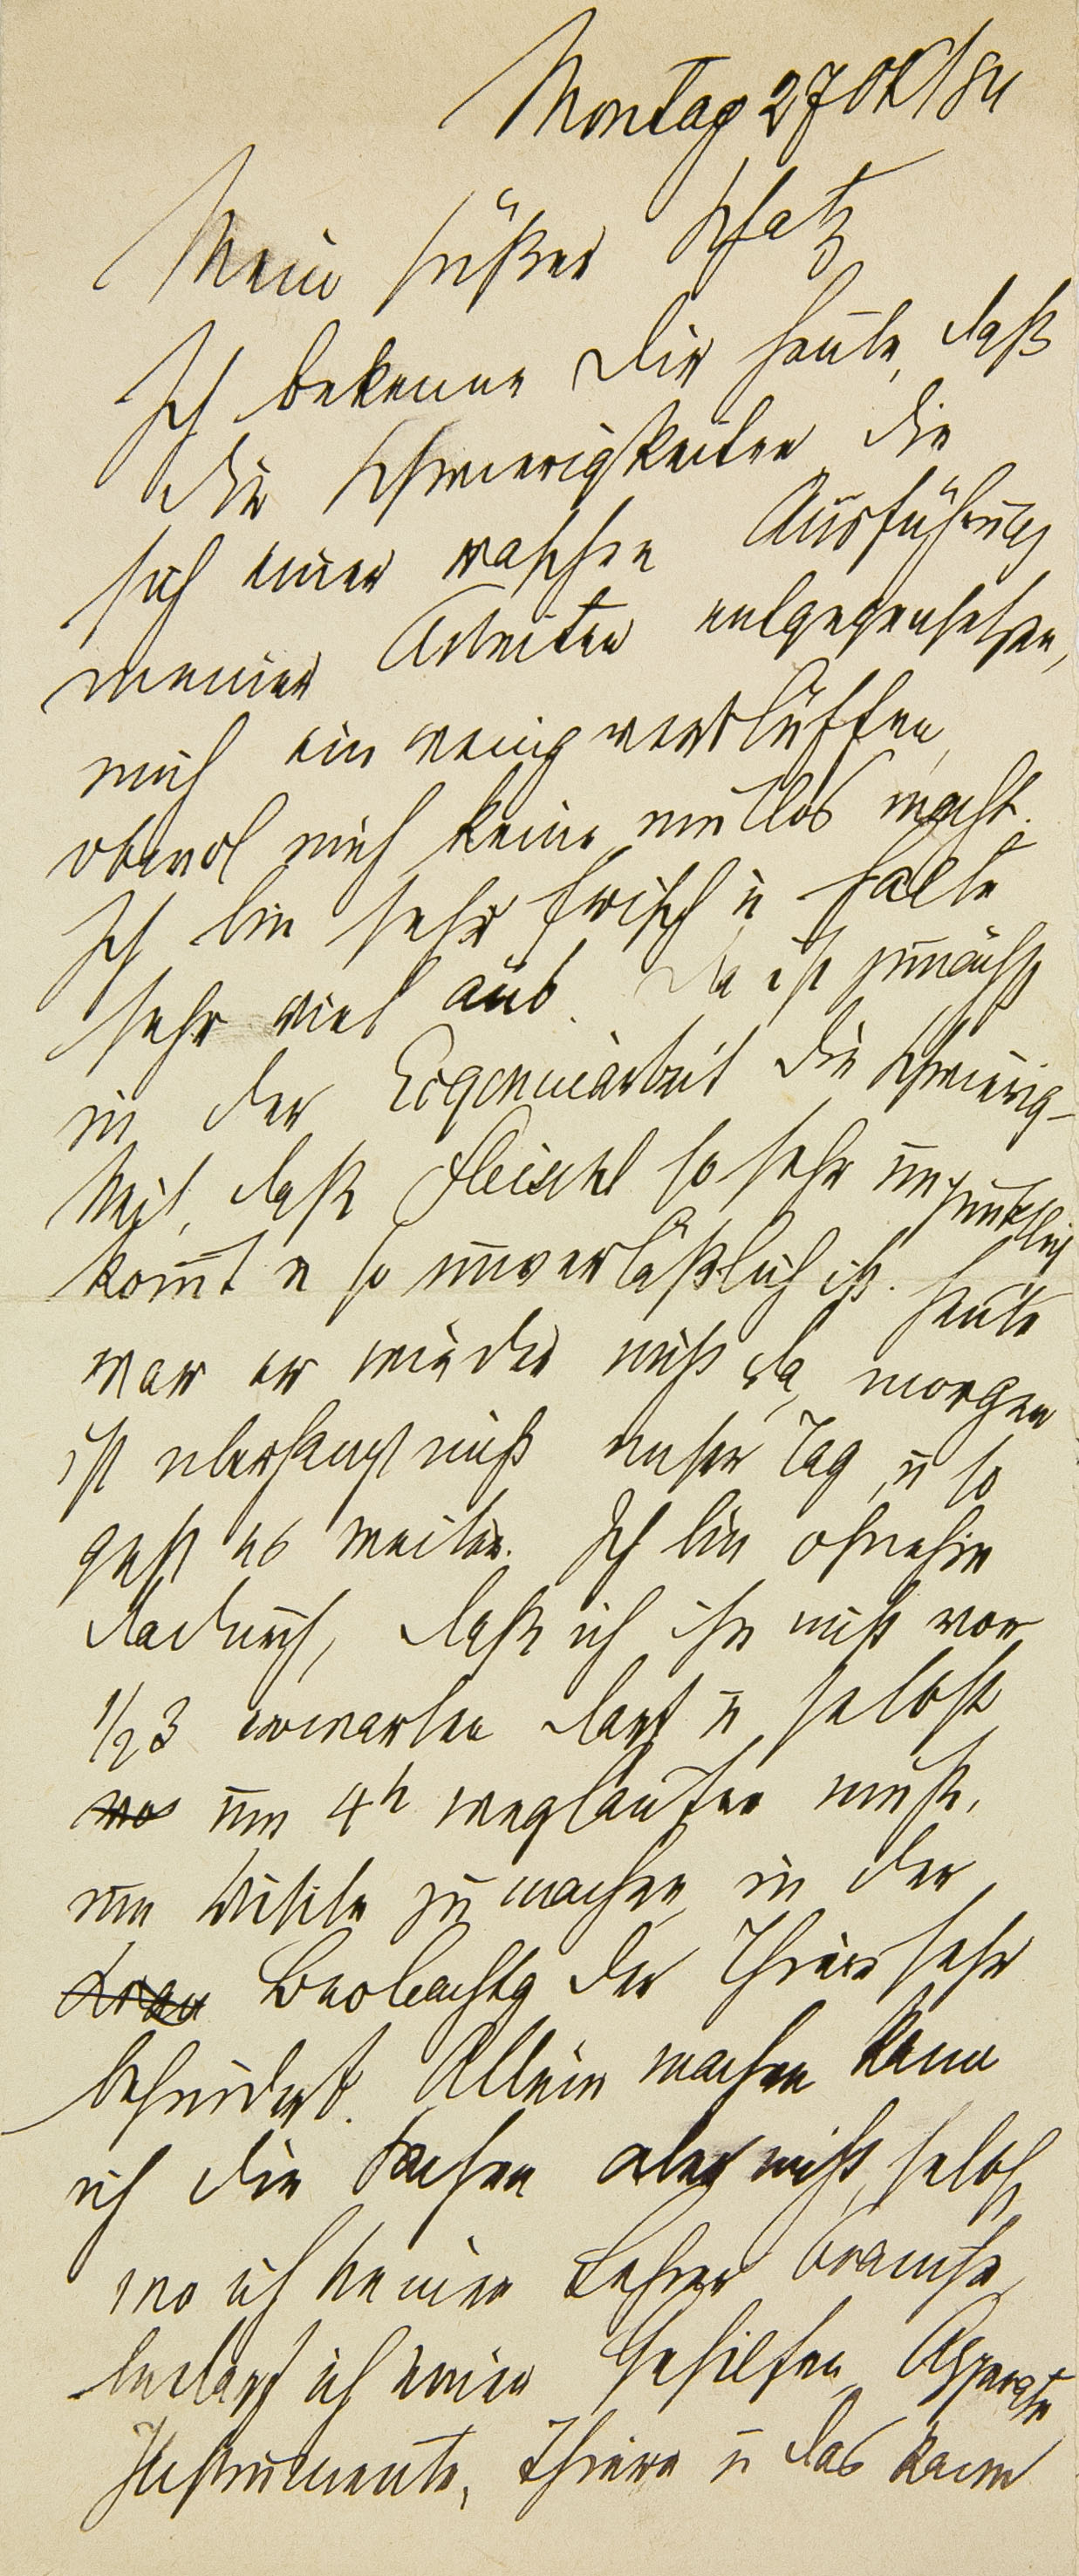 Montag 27 Okt 84
Mein süßer Schatz
Ich bekenne Dir heute, daß
die Schwierigkeiten, die
sich einer raschen Ausführung
meiner Arbeiten entgegensetzen,
mich ein wenig verblüffen,
obwol mich keine mutlos macht.
Ich bin sehr frisch u halte
sehr viel aus. Da ist zunächst
in der die Schwierig-
keit, daß Fleischl so sehr unpünktlich
kommt u so unverläßlich ist. Heute
war er wieder nicht da, morgen
ist überhaupt nicht unser Tag, u so
geht es weiter. Ich bin ohnehin
dadurch, daß ich ihn nicht vor
1/2 3 erwarten darf u selbst
um 4h weglaufen muß,
um Visite zu machen, in der
Beobachtg der Thiere sehr
behindert. Allein machen kann
ich die Sachen aber nicht, selbst
wo ich keinen Lehrer brauche,
bedarf ich eines Gehilfen, Apparate
Instrumente, Thiere u das kann